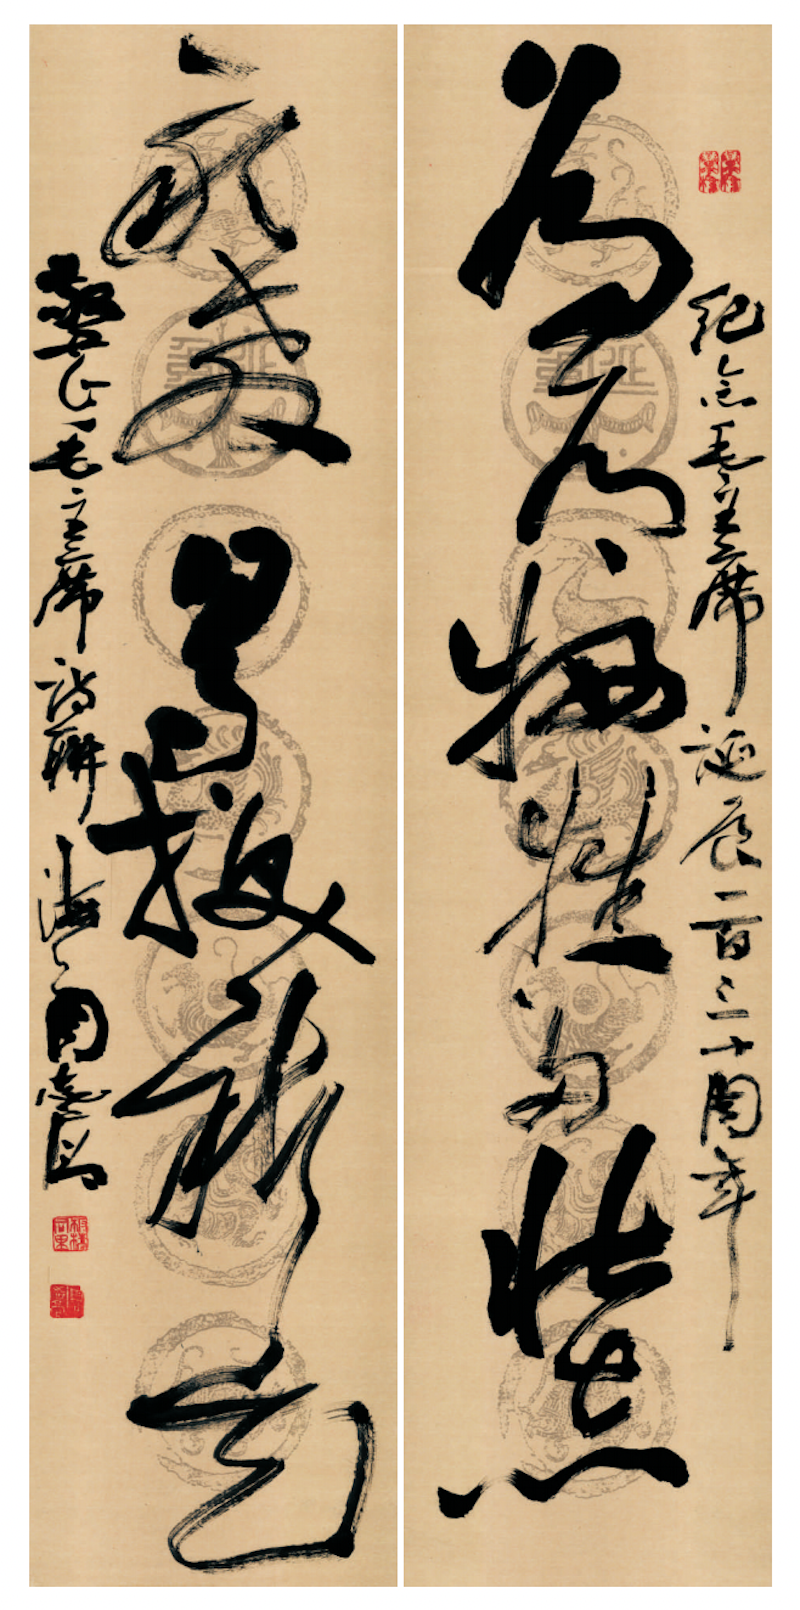 紀念毛主席誕辰一百三十周年
為有犧牲多壯志
敢教日月換新天
毛主席詩聯